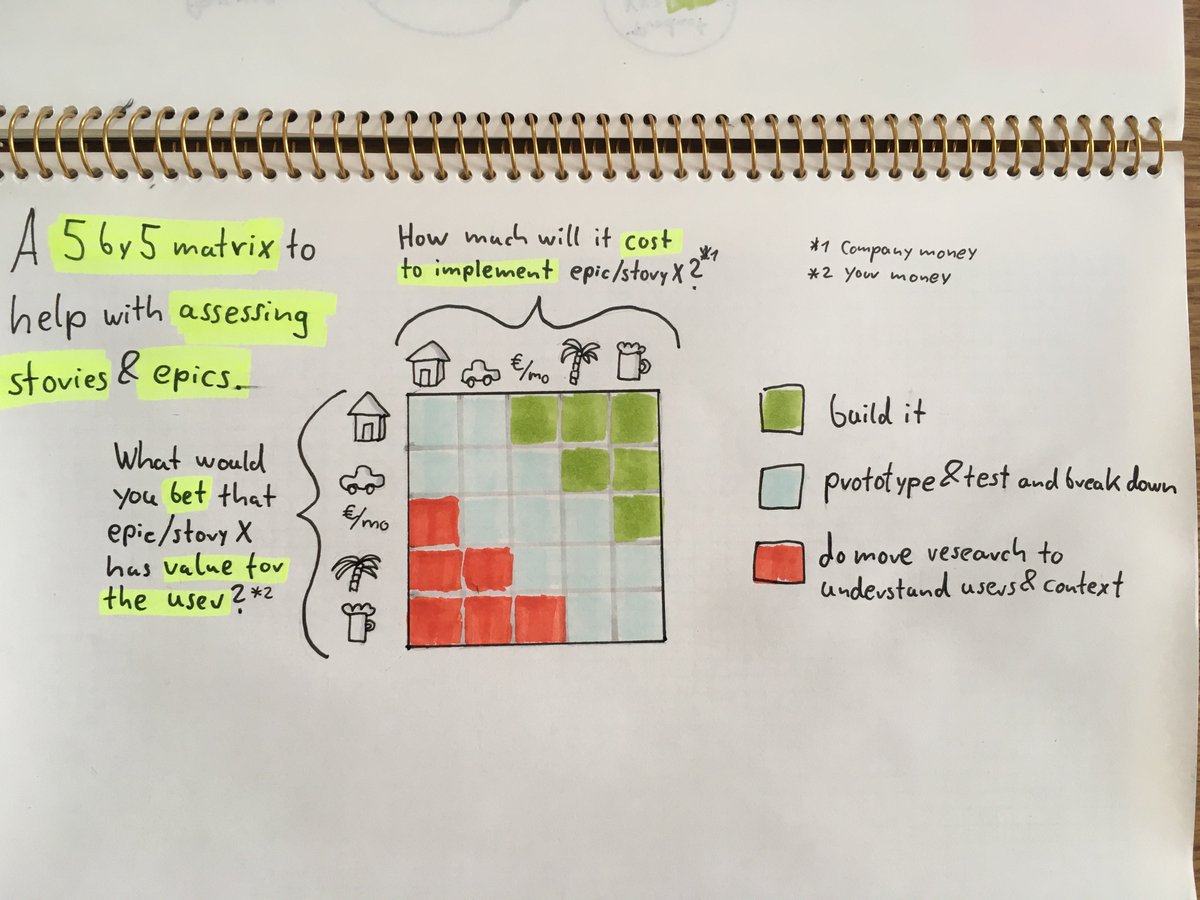 A 5 by 5 matrix to
help with assessing
stories & epics.
How much will it cost
to implement epic/story X?*1
*1 Company money
*2 Your money
€/mo
What would
you bet that
epic/story X
has value for
the user?*2
€/mo
build it
prototype & test and break down
do more research to
understand users & context